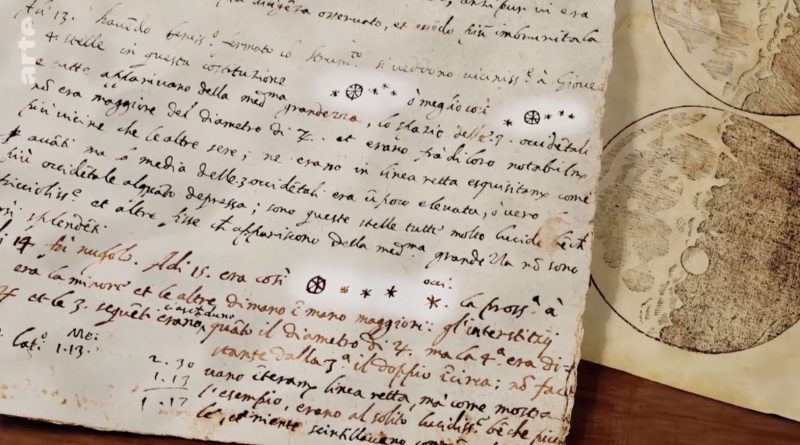 arte
osservato, et essẽdo più imbrunita la
Adi 13. havẽdo beniss.º fermato lo strum.to si veddono viciniss.e à Giove
4 stelle in questa costituzione ò meglio così
e tutte apparivano della med.ma grandezza, lo spazio delle 3. occidẽtali
nõ era maggiore del diametro di ♃. et erano frà di loro notabilm.
più vicine che le altre sere; ne erano in linea retta esquisitam. come
avãti ma la media delle 3 occidẽtali era ũ poco elevata, ò vero
più occidẽtale alquãto depressa; sono queste stelle tutte molto lucide bẽch
piccioliss.e et altre fisse ch appariscono della med.ma grandezza nõ sono
splendẽti.
14 fù nugolo. Adi 15. era così occi. la pross.a à
era la minore et le altre di mano ĩ mano maggiori: gl'interstizij
♃ et le 3. seguẽti erano quãto il diametro di ♃. ma la 4.a era di-
stante dalla 3.a il doppio ĩcirca; nõ face-
lat.º 1.13.
2.30
vano ĩteram. linea retta, ma come mostra
1.13
l'esempio, erano al solito lucidiss.e bẽche picco-
1.17
le, et niente scintillavano